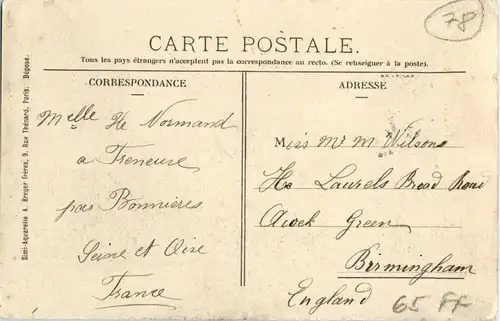 78
CARTE POSTALE.
Tous les pays étrangers n'acceptent pas la correspondance au recto. (Se renseigner à la poste).
CORRESPONDANCE
Melle He Normand
a Freneuse
par Bonnières
Seine et Oise
France
ADRESSE
Miss Mr M Wilsone
Ha Laurels Broad Road
Acock Green
Birmingham
England
65 FF
Simi-Aquarelle A. Breger frères, 9, Rue Thénard, Paris. Déposé.